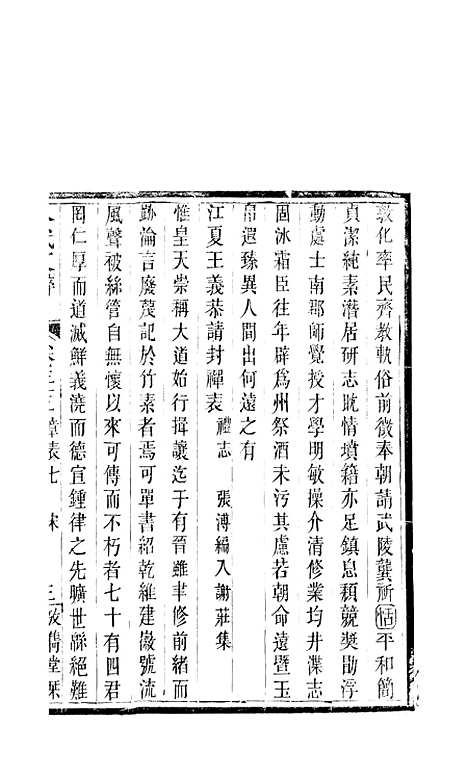 敦化率民齊教軌俗前徵奉朝請武陵龔祈恬平和簡
貞潔純素潛居研志耽情墳籍亦足鎮息頹競奬勖浮
動處士南郡師覺授才學明敏操介清修業均井渫志
固冰霜臣往年辟爲州祭酒未污其慮若朝命遠暨玉
帛遐臻異人間出何遠之有
江夏王義恭請封禪表 禮志 張溥編入謝莊集
惟皇天崇稱大道始行揖讓迄于有晉雖聿修前緒而
跡淪言廢蔑記於竹素者焉可單書紹乾維建徽號流
風聲被絲管自無懷以來可傳而不朽者七十有四君
罔仁厚而道滅鮮義澆而德宣鍾律之先曠世緜絕難
章表七 宋 三